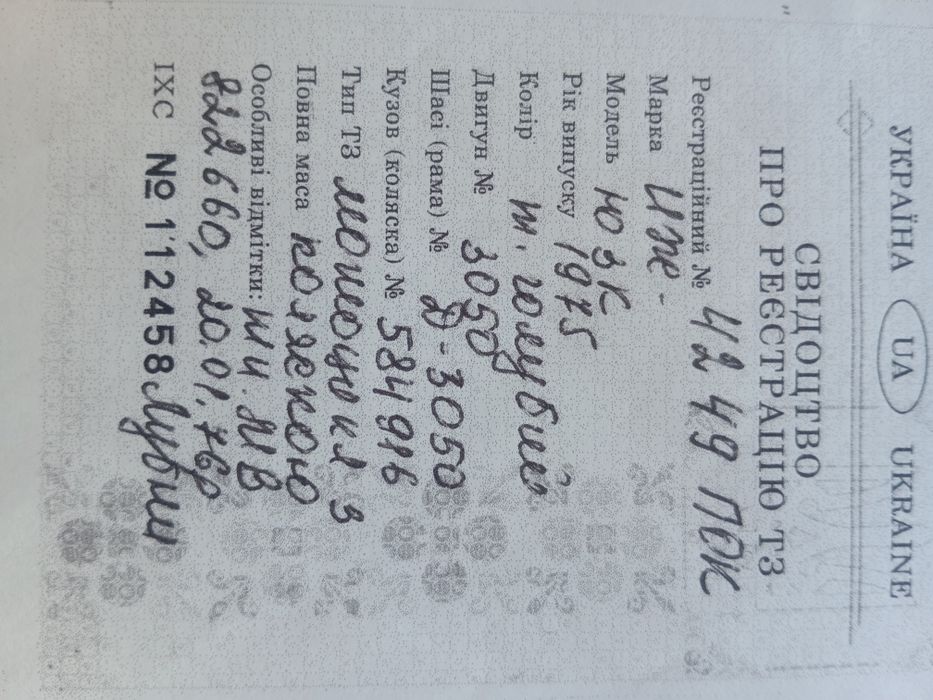 УКРАЇНА UA UKRAINE
СВІДОЦТВО
ПРО РЕЄСТРАЦІЮ ТЗ
Реєстраційний № 4249 ПОК
Марка Иж-
Модель Ю3К
Рік випуску 1975
Колір т. голубий
Двигун № 3050
Шасі (рама) № Д-3050
Кузов (коляска) № 584916
Тип ТЗ мотоцикл з
Повна маса коляскою
Особливі відмітки:
822660, 20.01.76р
ІХС № 112458